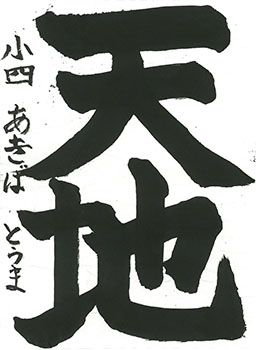 天地
小四 あきば とうま